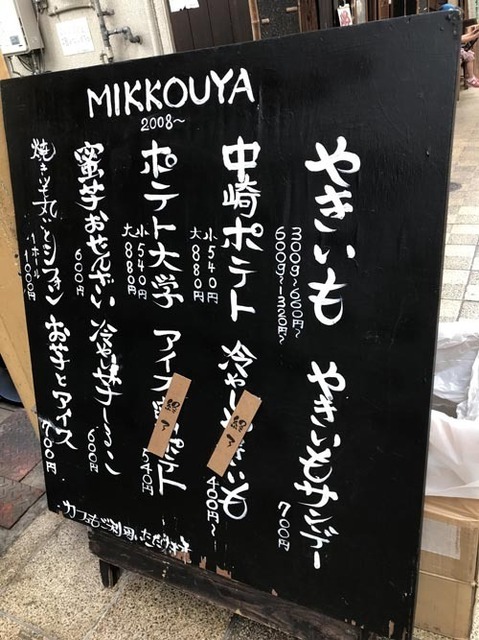 MIKKOUYA
2008〜
やきいも
300g〜600円〜
600g〜1,320円〜
中崎ポテト
小540円
大880円
ポテト大学
小540円
大880円
蜜芋おせんべい
600円
焼きいも丸ごとシフォン
1ホール
1000円
やきいもサンデー
700円
冷やしやきいも
400円〜
終了
アイス
ポテト
540円
終了
冷やし
600円
お芋とアイス
700円
カフェもご利用いただけます